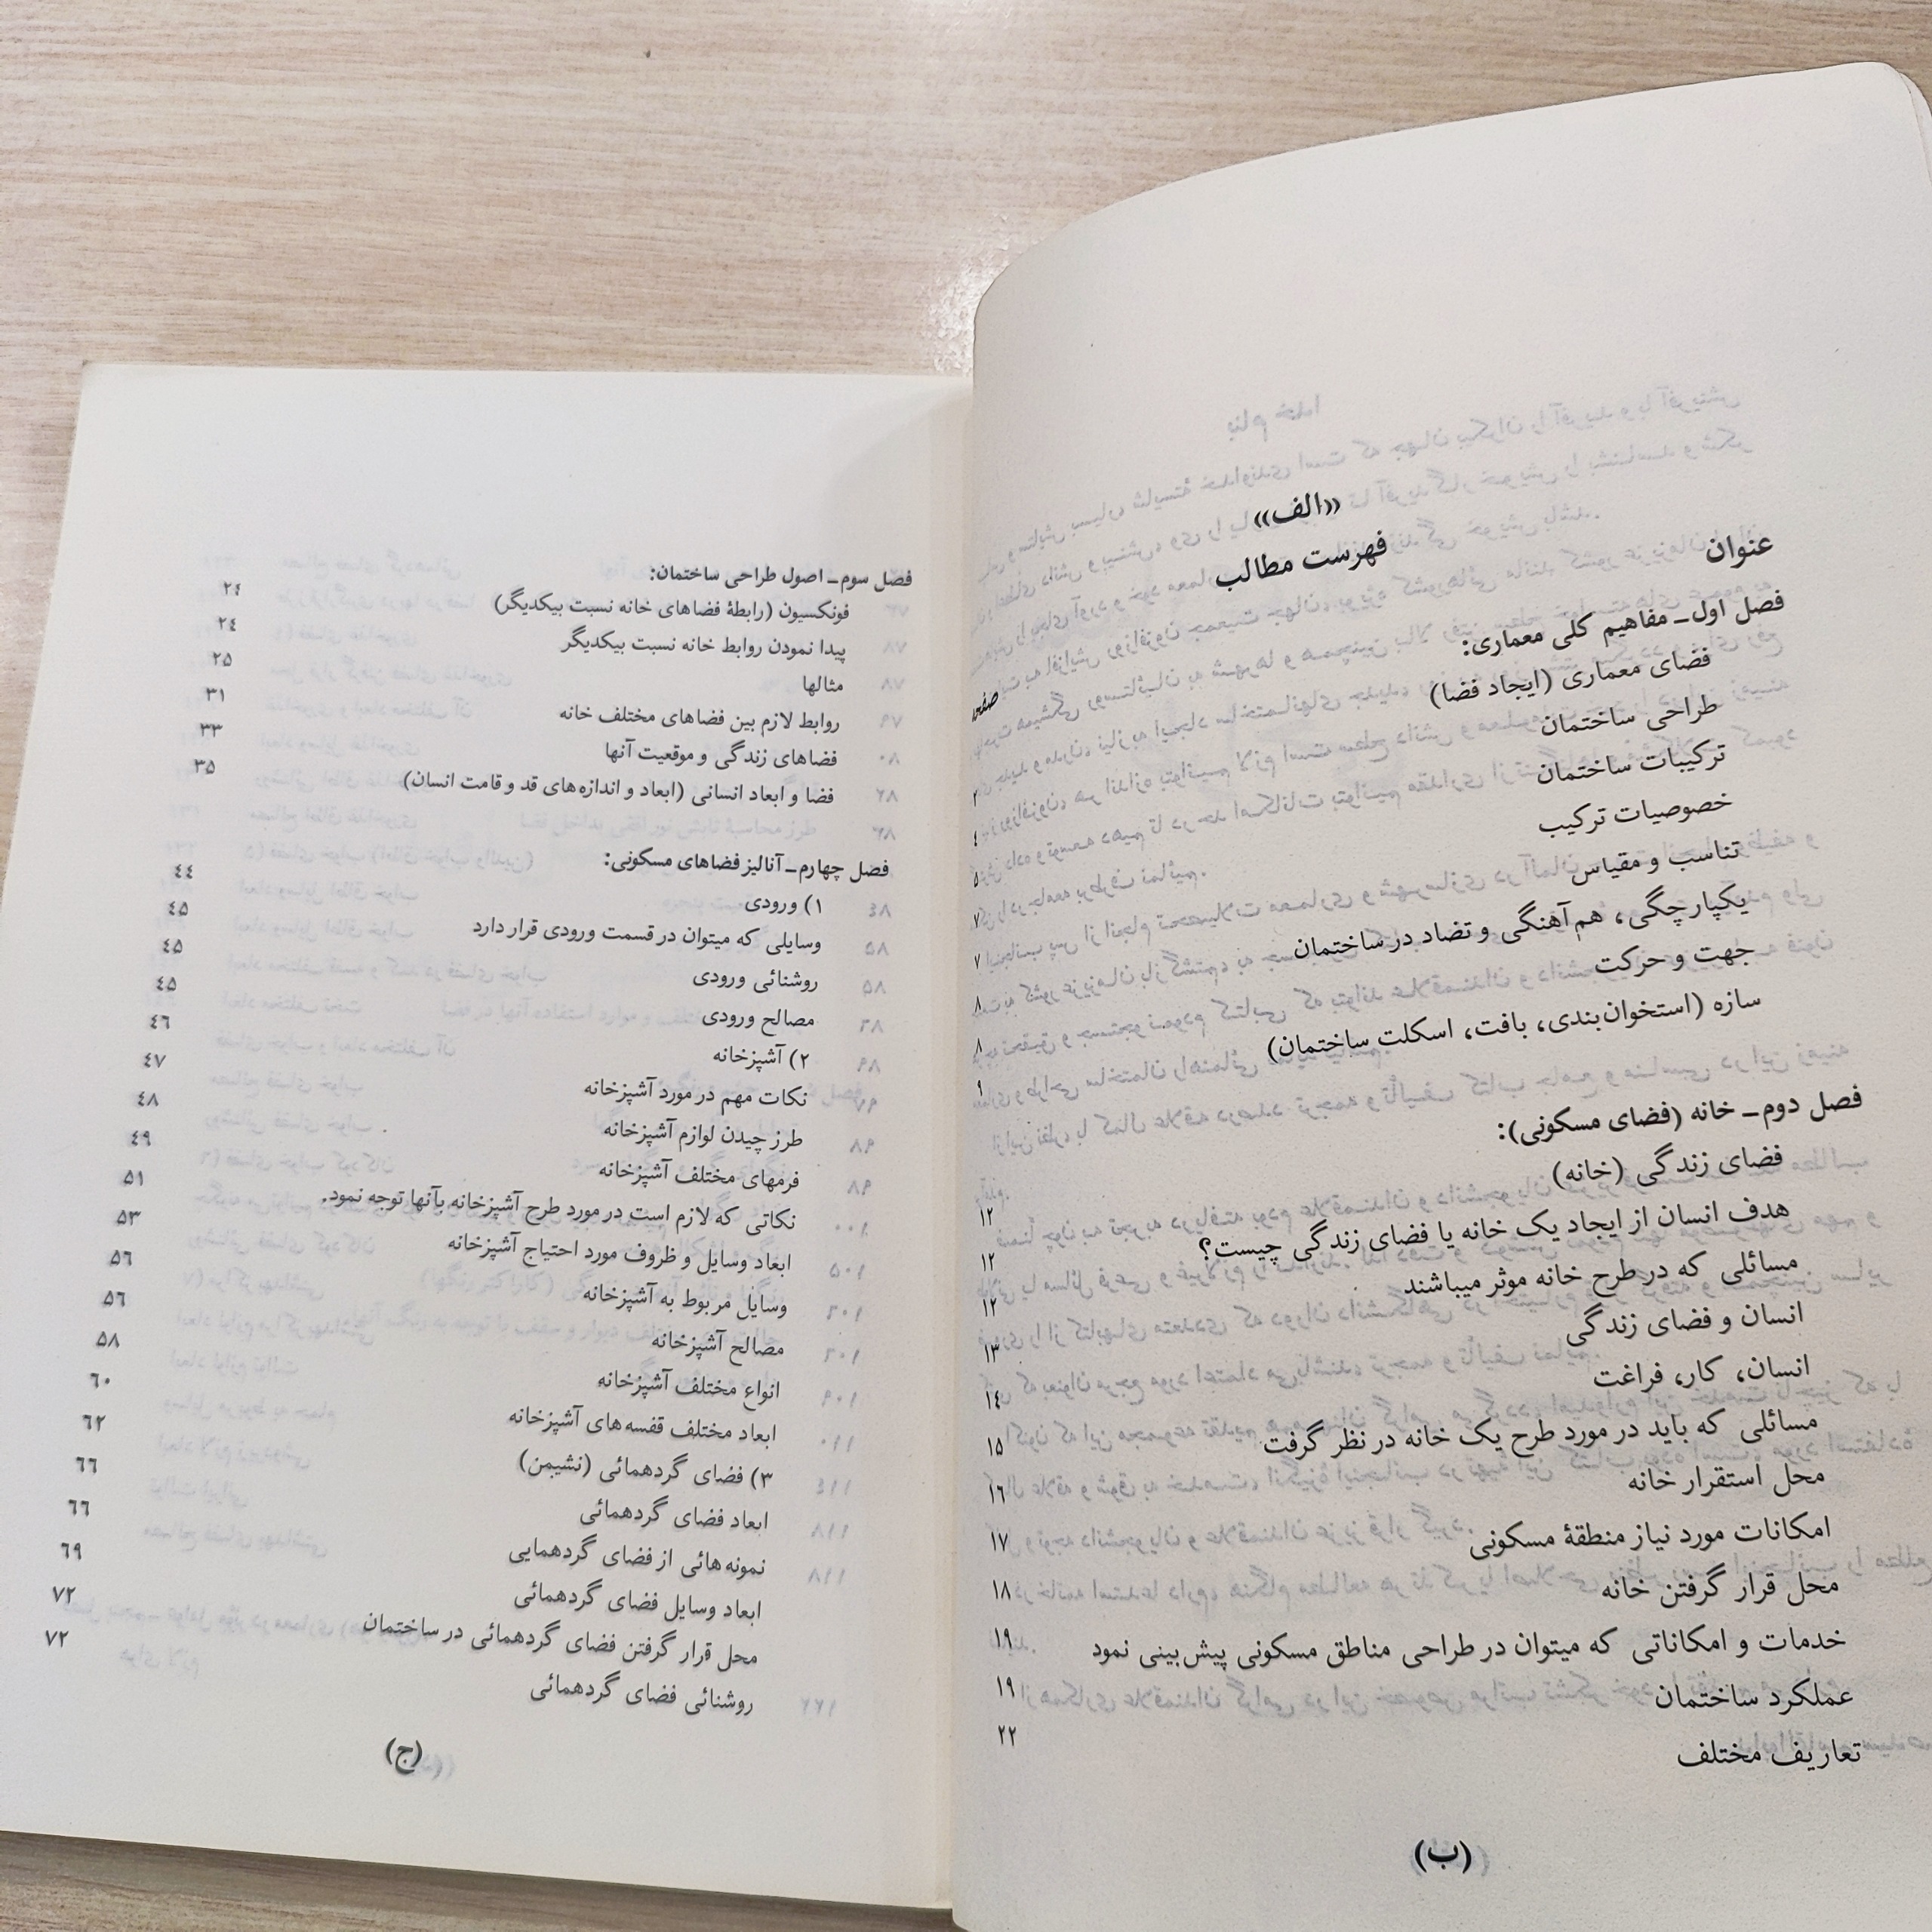 «الف»
فهرست مطالب
عنوان
صفحه
فصل اول ـ مفاهیم کلی معماری:
فضای معماری (ایجاد فضا) ۲
طراحی ساختمان ٤
ترکیبات ساختمان ۵
خصوصیات ترکیب ۷
تناسب و مقیاس ۷
یکپارچگی، هم‌آهنگی و تضاد در ساختمان ۸
جهت و حرکت ۸
سازه (استخوان‌بندی، بافت، اسکلت ساختمان) ۹
فصل دوم ـ خانه (فضای مسکونی):
فضای زندگی (خانه) ۱۲
هدف انسان از ایجاد یک خانه یا فضای زندگی چیست؟ ۱۲
مسائلی که در طرح خانه موثر میباشند ۱۲
انسان و فضای زندگی ۱۳
انسان، کار، فراغت ۱٤
مسائلی که باید در مورد طرح یک خانه در نظر گرفت ۱۵
محل استقرار خانه ۱٦
امکانات مورد نیاز منطقهٔ مسکونی ۱۷
محل قرار گرفتن خانه ۱۸
خدمات و امکاناتی که میتوان در طراحی مناطق مسکونی پیش‌بینی نمود ۱۹
عملکرد ساختمان ۱۹
تعاریف مختلف ۲۲
(ب)
فصل سوم ـ اصول طراحی ساختمان:
فونکسیون (رابطهٔ فضاهای خانه نسبت بیکدیگر) ۲٤
پیدا نمودن روابط خانه نسبت بیکدیگر ۲٤
مثالها ۲۵
روابط لازم بین فضاهای مختلف خانه ۳۱
فضاهای زندگی و موقعیت آنها ۳۳
فضا و ابعاد انسانی (ابعاد و اندازه‌های قد و قامت انسان) ۳۵
فصل چهارم ـ آنالیز فضاهای مسکونی:
۱) ورودی ٤٤
وسایلی که میتوان در قسمت ورودی قرار دارد ٤۵
روشنائی ورودی ٤۵
مصالح ورودی ٤۵
۲) آشپزخانه ٤٦
نکات مهم در مورد آشپزخانه ٤۷
طرز چیدن لوازم آشپزخانه ٤۸
فرمهای مختلف آشپزخانه ٤۹
نکاتی که لازم است در مورد طرح آشپزخانه بآنها توجه نمود. ۵۱
ابعاد وسایل و ظروف مورد احتیاج آشپزخانه ۵۳
وسایل مربوط به آشپزخانه ۵٦
مصالح آشپزخانه ۵٦
انواع مختلف آشپزخانه ۵۸
ابعاد مختلف قفسه‌های آشپزخانه ٦۰
۳) فضای گردهمائی (نشیمن) ٦۲
ابعاد فضای گردهمائی ٦٦
نمونه‌هائی از فضای گردهمایی ٦٦
ابعاد وسایل فضای گردهمائی ٦۹
محل قرار گرفتن فضای گردهمائی در ساختمان ۷۲
روشنائی فضای گردهمائی ۷۲
(ج)